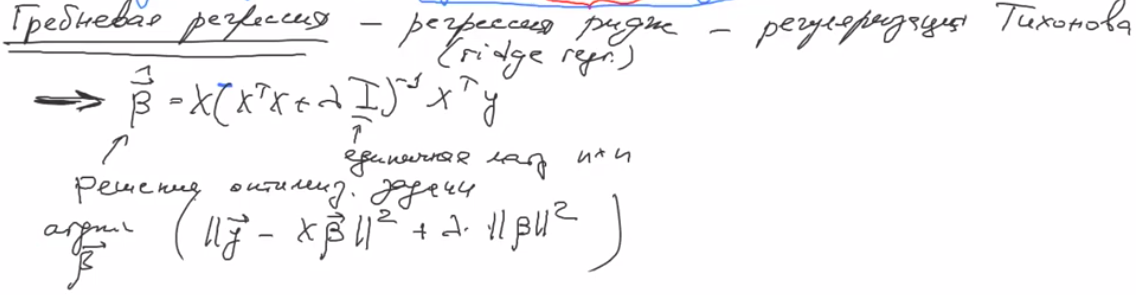 Гребневая регрессия – регрессия ридж – регуляризация Тихонова
(ridge regr.)
⟹ β̂⃗ = X(XᵀX + λI)⁻¹Xᵀy
единичная матр n×n
решение оптимиз. задачи
argmin (‖y⃗ − Xβ⃗‖² + λ·‖β‖²)
β⃗